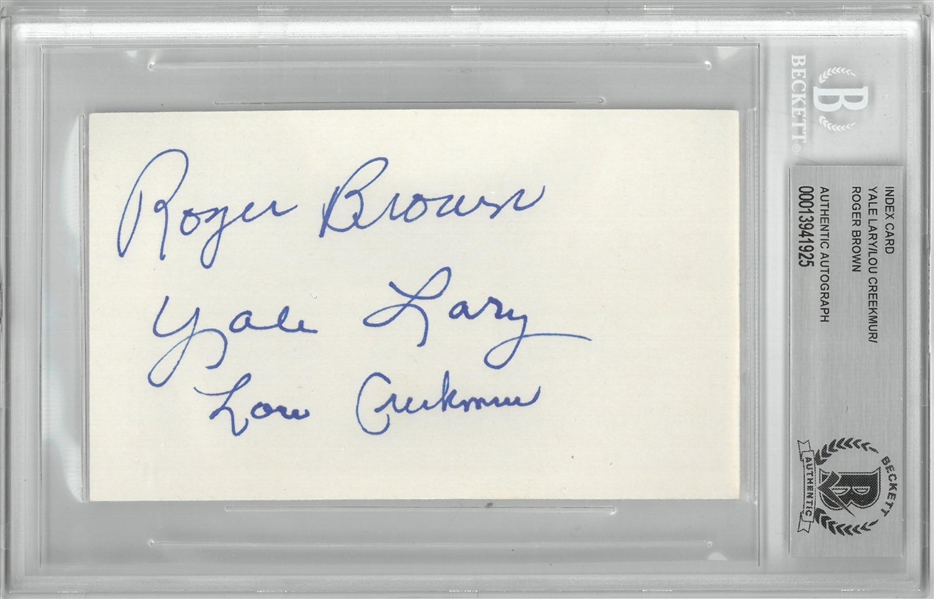 Roger Brown
Yale Lary
Lou Creekmur
BECKETT
B
INDEX CARD
YALE LARY/LOU CREEKMUR/
ROGER BROWN
AUTHENTIC AUTOGRAPH
00013941925
BECKETT
B
AUTHENTIC